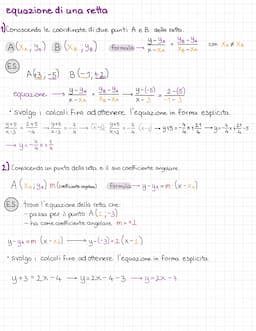 equazione di una retta
1) Conoscendo le coordinate di due punti A e B della retta.
A(xₐ, yₐ) B(x_B, y_B) formula → (y-yₐ)/(x-xₐ) = (y_B-yₐ)/(x_B-xₐ) con xₐ ≠ x_B
ES:
A(3,-5) B(-1,+2)
equazione → (y-yₐ)/(x-xₐ) = (y_B-yₐ)/(x_B-xₐ) → (y-(-5))/(x-3) = (2-(-5))/(-1-3)
• svolgo i calcoli fino ad ottenere l'equazione in forma esplicita.
2) Conoscendo un punto della retta e il suo coefficiente angolare.
A(xₐ, yₐ) m (coefficiente angolare) formula → y-yₐ=m (x-xₐ)
ES: trova l'equazione della retta che:
-passa per il punto A(1,-3)
-ha come coefficiente angolare m=+2
y-yₐ=m (x-xₐ) → y-(-3)=2(x-1)
• svolgo i calcoli fino ad ottenere l'equazione in forma esplicita.